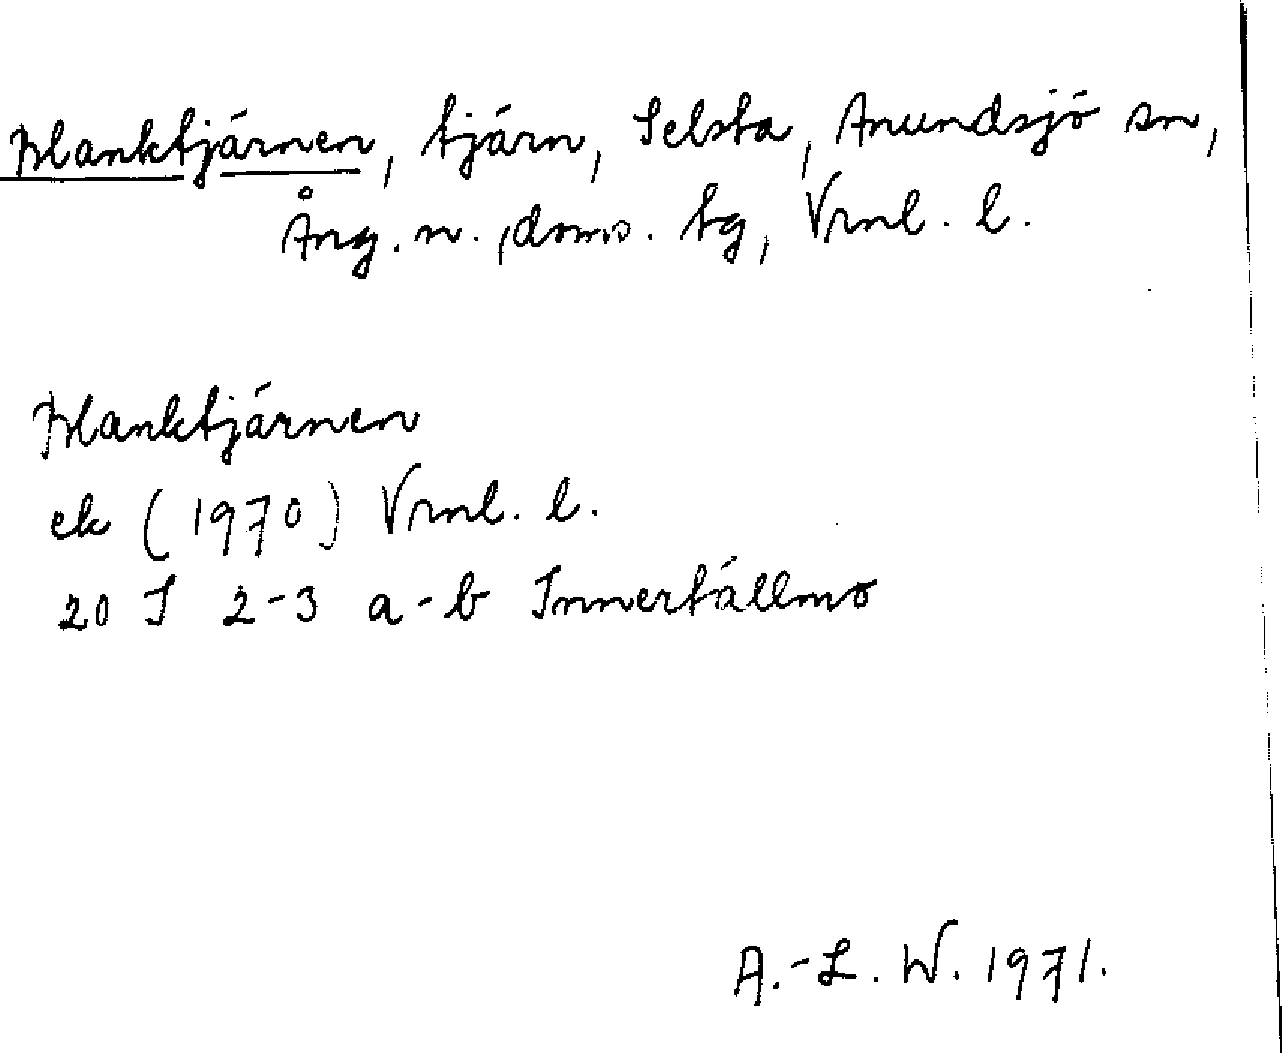 Blanktjärnen, tjärn, Selsta, Anundsjö sn,
Ång. n. doms. tg, Vrnl. l.
Blanktjärnen
ek (1970) Vrnl. l.
20 I 2-3 a-b Innertällmo
A.-L. W. 1971.